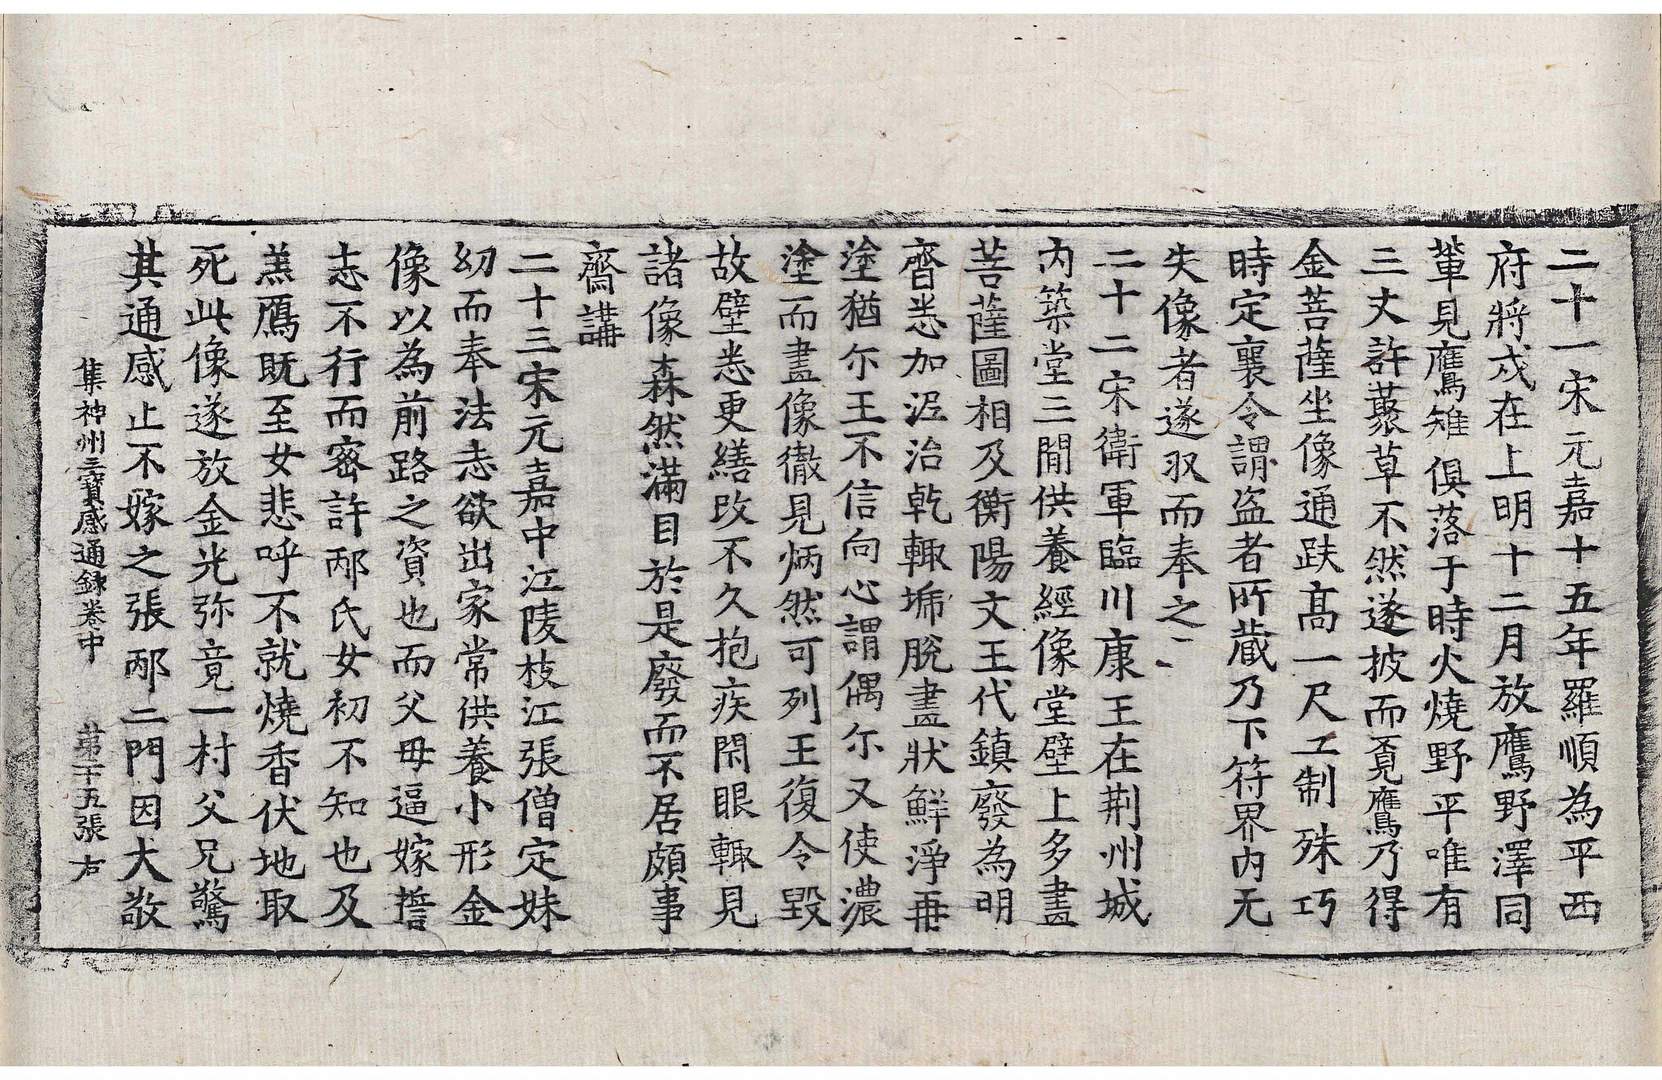 二十一宋元嘉十五年羅順為平西
府將戍在上明十二月放鷹野澤同
軰見鷹雉俱落于時火燒野平唯有
三丈許藂草不然遂披而覓鷹乃得
金菩薩坐像通趺髙一尺工制殊巧
時定襄令謂盗者所蔵乃下符界内无
失像者遂収而奉之
二十二宋衛軍臨川康王在荆州城
内築堂三閒供養經像堂壁上多畫
菩薩圖相及衡陽文王代鎮廢為明
齋悉加泥治乾輙褫脫畫狀鮮淨再
塗猶尓王不信向心謂偶尓又使濃
塗而畫像徹見炳然可列王復令毀
故壁悉更繕改不久抱疾閇眼輙見
諸像森然滿目於是廢而不居頗事
齋講
二十三宋元嘉中江陵枝江張僧定妹
幼而奉法志欲出家常供養小形金
像以為前路之資也而父母逼嫁誓
志不行而密許邴氏女初不知也及
羔鴈既至女悲呼不就燒香伏地取
死此像遂放金光弥竟一村父兄驚
其通感止不嫁之張邴二門因大敬
集神州三寶感通録卷中　第十五張　右